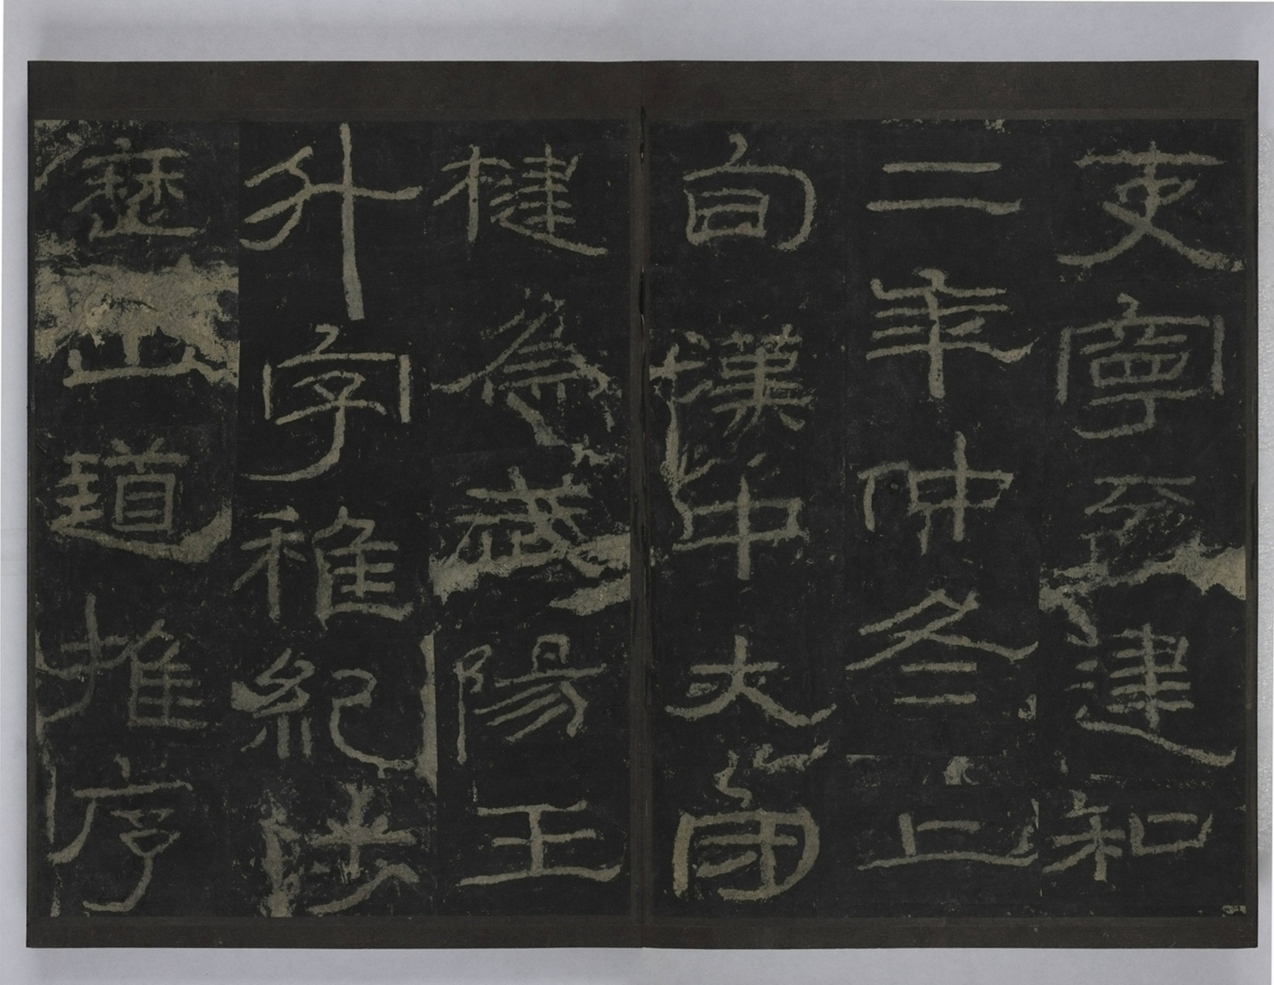 艾寧至建和
二年仲冬上
旬漢中大守
楗為武陽王
升字稚紀涉
歷山道推序